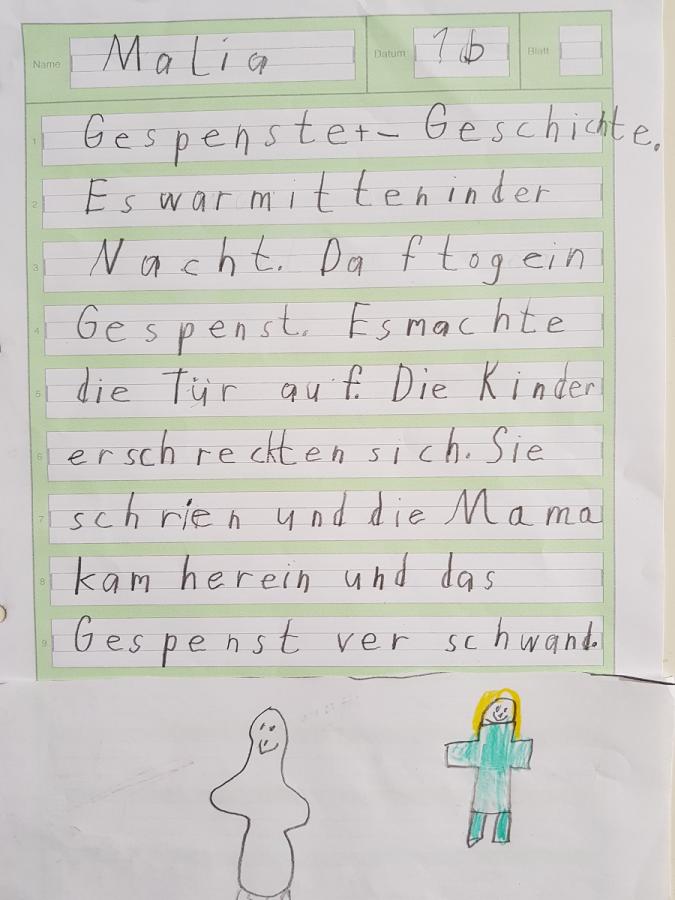 Name Malia Datum 1b Blatt
1 Gespenster-Geschichte.
2 Es war mitten in der
3 Nacht. Da flog ein
4 Gespenst. Es machte
5 die Tür auf. Die Kinder
6 erschreckten sich. Sie
7 schrien und die Mama
8 kam herein und das
9 Gespenst verschwand.